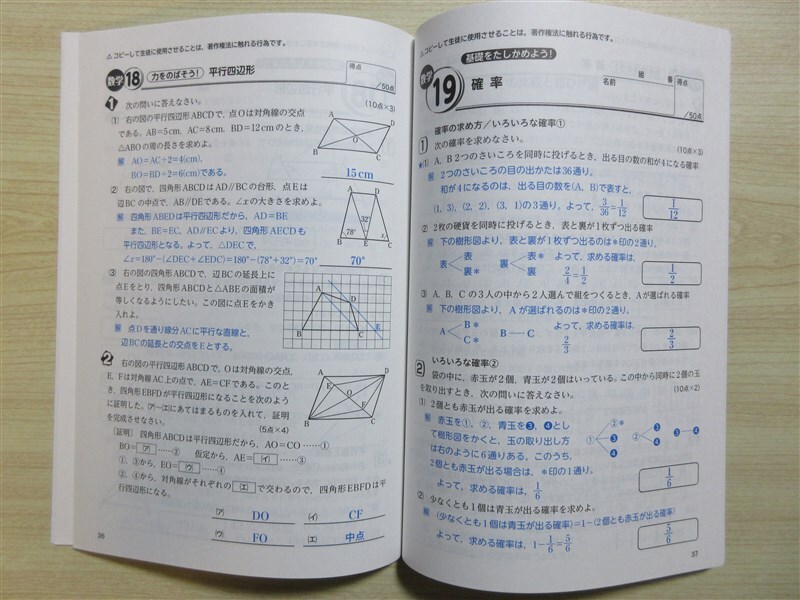 △コピーして生徒に使用させることは、著作権法に触れる行為です。
数学 18 力をのばそう! 平行四辺形
得点
/50点
1 次の問いに答えなさい。
(10点×3)
(1) 右の図の平行四辺形ABCDで、点Oは対角線の交点
である。AB=5cm, AC=8cm, BD=12cmのとき、
△ABOの周の長さを求めよ。
解 AO=AC÷2=4(cm),
BO=BD÷2=6(cm)である。
15cm
A
D
O
B
C
(2) 右の図で、四角形ABCDはAD//BCの台形、点Eは
辺BCの中点で、AB//DEである。∠xの大きさを求めよ。
解 四角形ABEDは平行四辺形だから、AD=BE
また、BE=EC, AD//ECより、四角形AECDも
平行四辺形となる。よって、△DECで、
∠x=180°-(∠DEC+∠EDC)=180°-(78°+32°)=70°
70°
A
D
32°
78°
x
B
E
C
(3) 右の図の四角形ABCDで、辺BCの延長上に
点Eをとり、四角形ABCDと△ABEの面積が
等しくなるようにしたい。この図に点Eをかき
入れよ。
解 点Dを通り線分ACに平行な直線と、
辺BCの延長との交点をEとする。
A
D
B
C
E
2 右の図の平行四辺形ABCDで、Oは対角線の交点、
E, Fは対角線AC上の点で、AE=CFである。このと
き、四角形EBFDが平行四辺形になることを次のよう
に証明した。(ア)~(エ)にあてはまるものを入れて、証明
を完成させなさい。
(5点×4)
A
D
E
O
F
B
C
〔証明〕 四角形ABCDは平行四辺形だから、AO=CO ……①
BO=(ア) ……② 仮定から、AE=(イ) ……③
①, ③から、EO=(ウ) ……④
②, ④から、対角線がそれぞれの(エ)で交わるので、四角形EBFDは平
行四辺形になる。
(ア) DO
(イ) CF
(ウ) FO
(エ) 中点
36
△コピーして生徒に使用させることは、著作権法に触れる行為です。
数学 19 基礎をたしかめよう!
確率
組
番
名前
得点
/50点
確率の求め方/いろいろな確率①
1 次の確率を求めなさい。
(10点×3)
★(1) A, B2つのさいころを同時に投げるとき、出る目の数の和が4になる確率
解 2つのさいころの目の出かたは36通り。
和が4になるのは、出る目の数を(A, B)で表すと、
(1, 3), (2, 2), (3, 1)の3通り。よって、3/36=1/12
1/12
(2) 2枚の硬貨を同時に投げるとき、表と裏が1枚ずつ出る確率
解 下の樹形図より、表と裏が1枚ずつ出るのは*印の2通り。
表 表 裏* 裏 表* 裏 よって、求める確率は、
2/4=1/2
1/2
(3) A, B, Cの3人の中から2人選んで組をつくるとき、Aが選ばれる確率
解 下の樹形図より、Aが選ばれるのは*印の2通り。
A B* C* B─C よって、求める確率は、
2/3
2/3
2 いろいろな確率②
袋の中に、赤玉が2個、青玉が2個はいっている。この中から同時に2個の玉
を取り出すとき、次の問いに答えなさい。
(10点×2)
(1) 2個とも赤玉が出る確率を求めよ。
解 赤玉を①, ②, 青玉を❸, ❹とし
て樹形図をかくと、玉の取り出し方
は右のように6通りある。このうち、
2個とも赤玉が出る場合は、*印の1通り。
よって、求める確率は、1/6
① ②* ❸ ❹
② ❸ ❹
❸─❹
1/6
(2) 少なくとも1個は青玉が出る確率を求めよ。
解 (少なくとも1個は青玉が出る確率)=1-(2個とも赤玉が出る確率)
よって、求める確率は、1-1/6=5/6
5/6
37